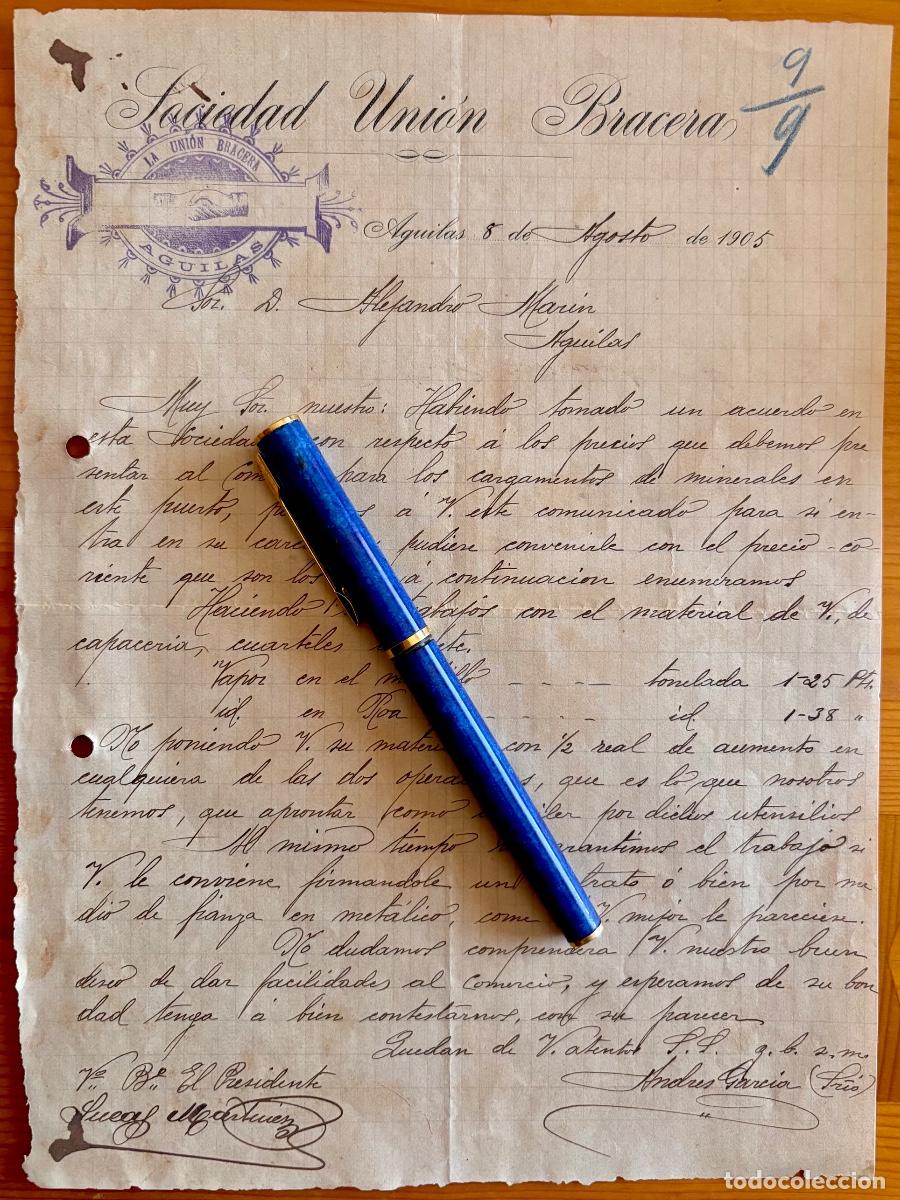 Sociedad Unión Bracera
9/9
LA UNIÓN BRACERA
AGUILAS
Aguilas 8 de Agosto de 1905
Sor. D. Alejandro Marin
Aguilas
Muy Sor. nuestro: Habiendo tomado un acuerdo en
esta Sociedad con respecto á los precios que debemos pre
sentar al Com para los cargamentos de minerales en
este puerto, á V. este comunicado para si en-
tra en su pudiese convenirle con el precio co-
rriente que son los á continuacion enumeramos
Haciendo trabajos con el material de V., de
capaceria, cuarteles etc.
Vapor en el - - - - - tonelada 1-25 Pts.
id. en Roa - - - - - id. 1-38 "
No poniendo V. su material con 1/2 real de aumento en
cualquiera de las dos , que es lo que nosotros
tenemos, que aprontar como por dichos utensilios
Al mismo tiempo garantimos el trabajo si
V. le conviene firmandole un ó bien por me
dio de fianza en metálico, come V. mijor le pareciese.
No dudamos comprendera V. nuestro buen
deseo de dar facilidades al Comercio, y esperamos de su bon
dad tenga á bien contestarnos, con su parecer
Quedan de V. atentos S.S. q. b. s. m.
Vº Bº El Presidente
Andres Garcia (Srio)
Lucas Martinez
todocoleccion